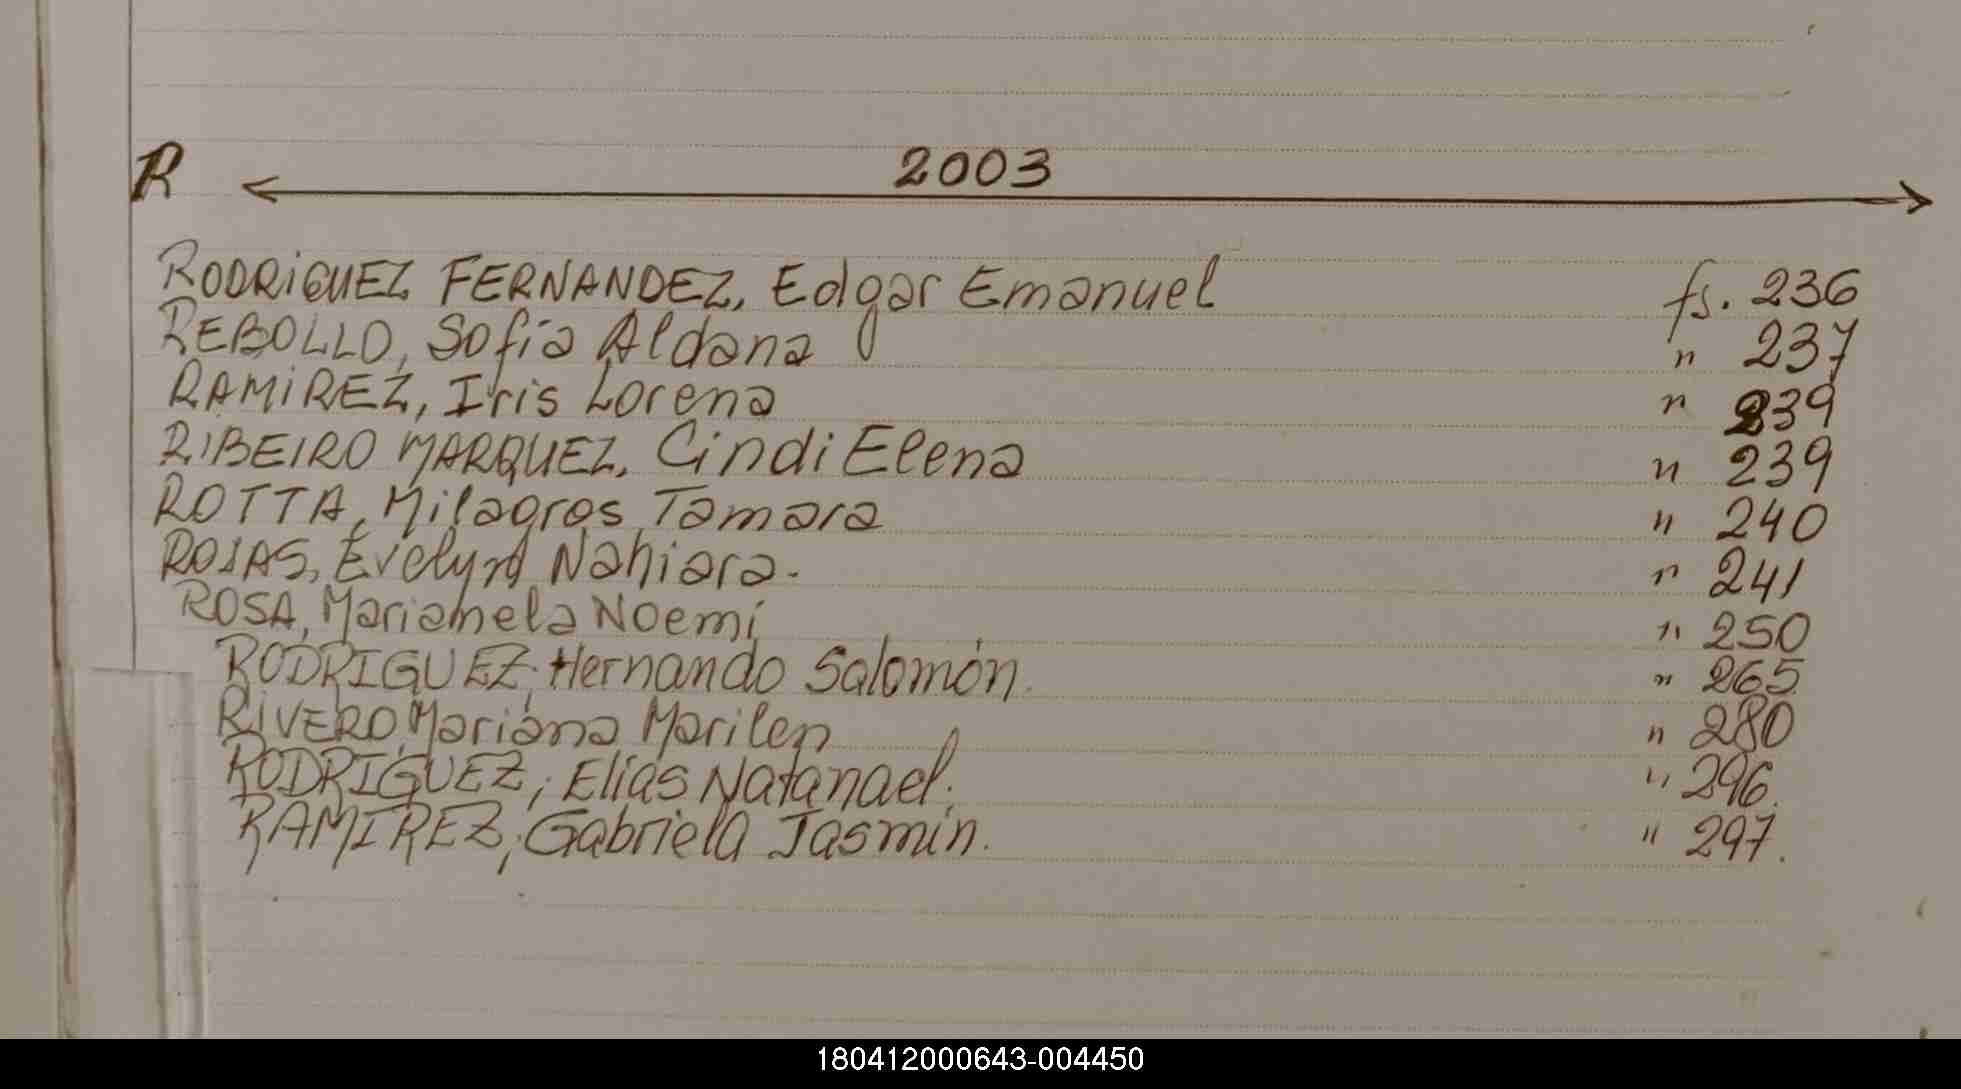 R 2003
RODRIGUEZ FERNANDEZ, Edgar Emanuel fs. 236
REBOLLO, Sofía Aldana " 237
RAMIREZ, Iris Lorena " 239
RIBEIRO MARQUEZ, Cindi Elena " 239
ROTTA, Milagros Tamara " 240
ROJAS, Evelyn Nahiara. " 241
ROSA, Mariamela Noemí " 250
RODRIGUEZ, Hernando Salomón. " 265
RIVERO, Mariana Marilen " 280
RODRIGUEZ; Elías Natanael. " 296.
RAMIREZ; Gabriela Jasmín. " 297.
180412000643-004450